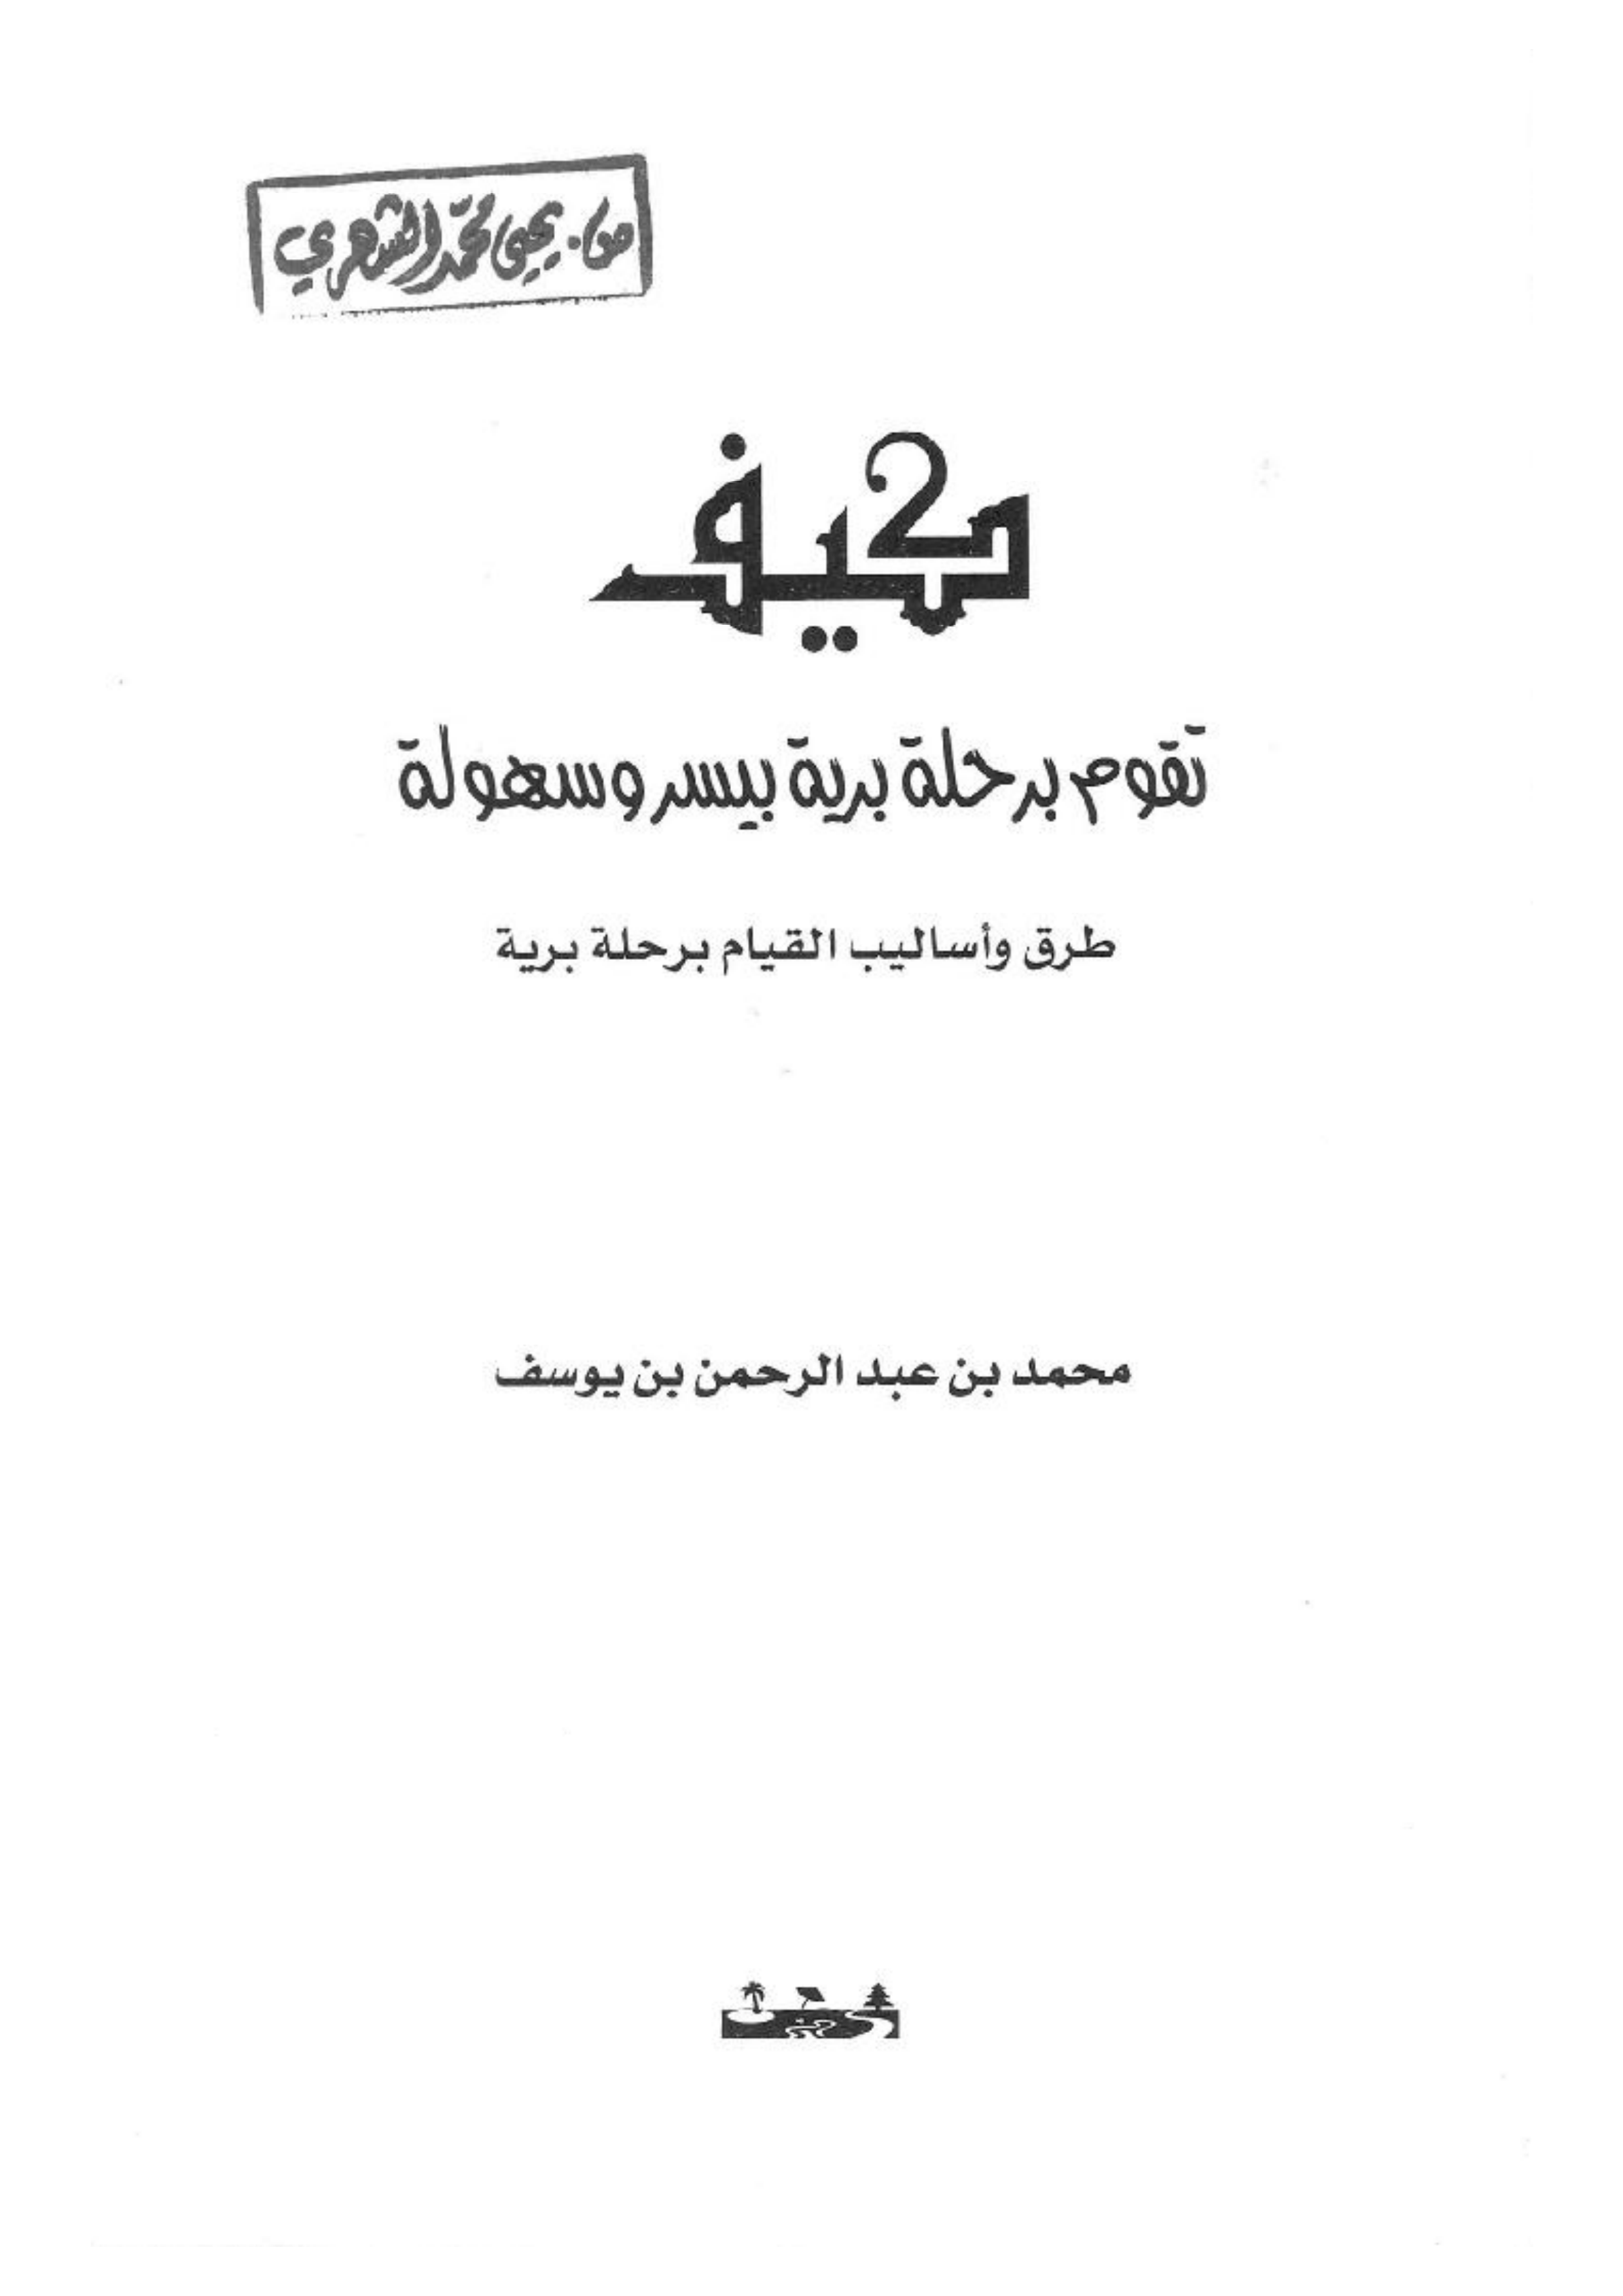 يحيى محمد الشهري
كيف
تقوم برحلة برية بيسر وسهولة
طرق وأساليب القيام برحلة برية
محمد بن عبد الرحمن بن يوسف